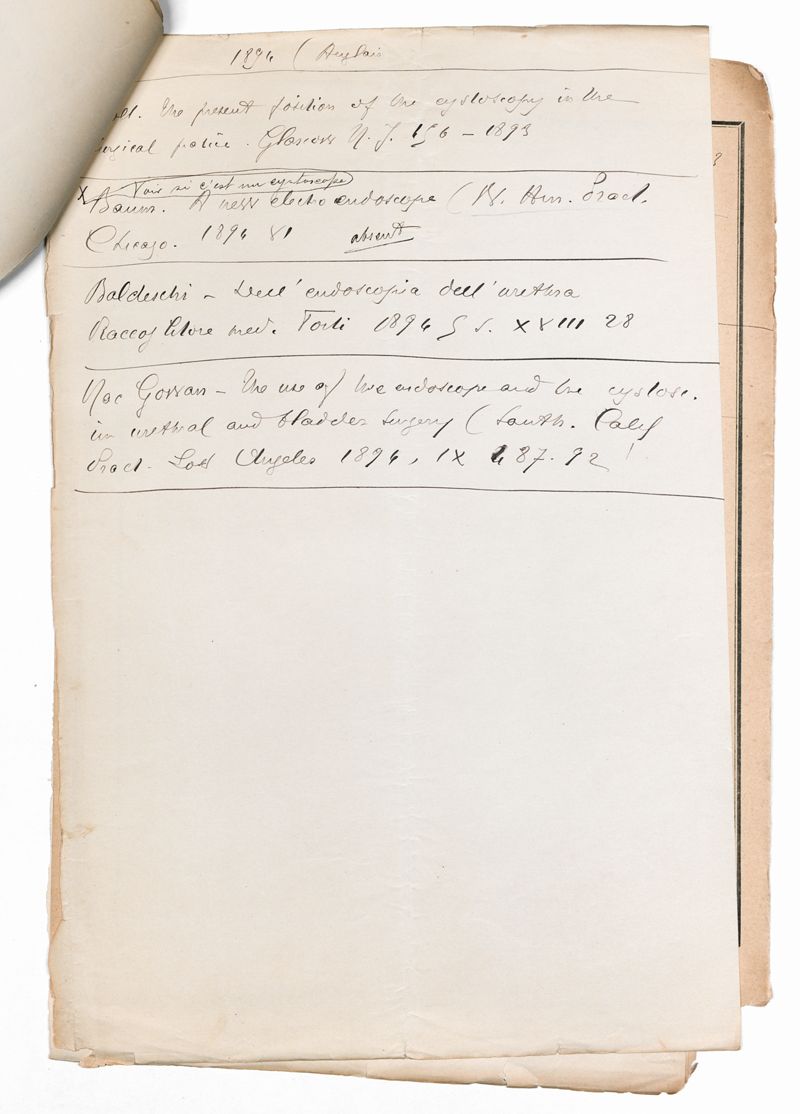 1894 (Anglais
The present position of the cystoscopy in the
Glascow M. J. 156 – 1893
x Voir si c'est un cystoscope
Baum. A new electro endoscope (N. Am. Pract.
Chicago. 1894 VI absent
Baldeschi – Dell' endoscopia dell' urethra
Raccoglitore med. Forli 1894 5 s. XVIII 28
Mac Gowan – The use of the endoscope and the cystosc.
in urethral and bladder surgery (South. Calif
Pract. Los Angeles 1894, IX 487-92